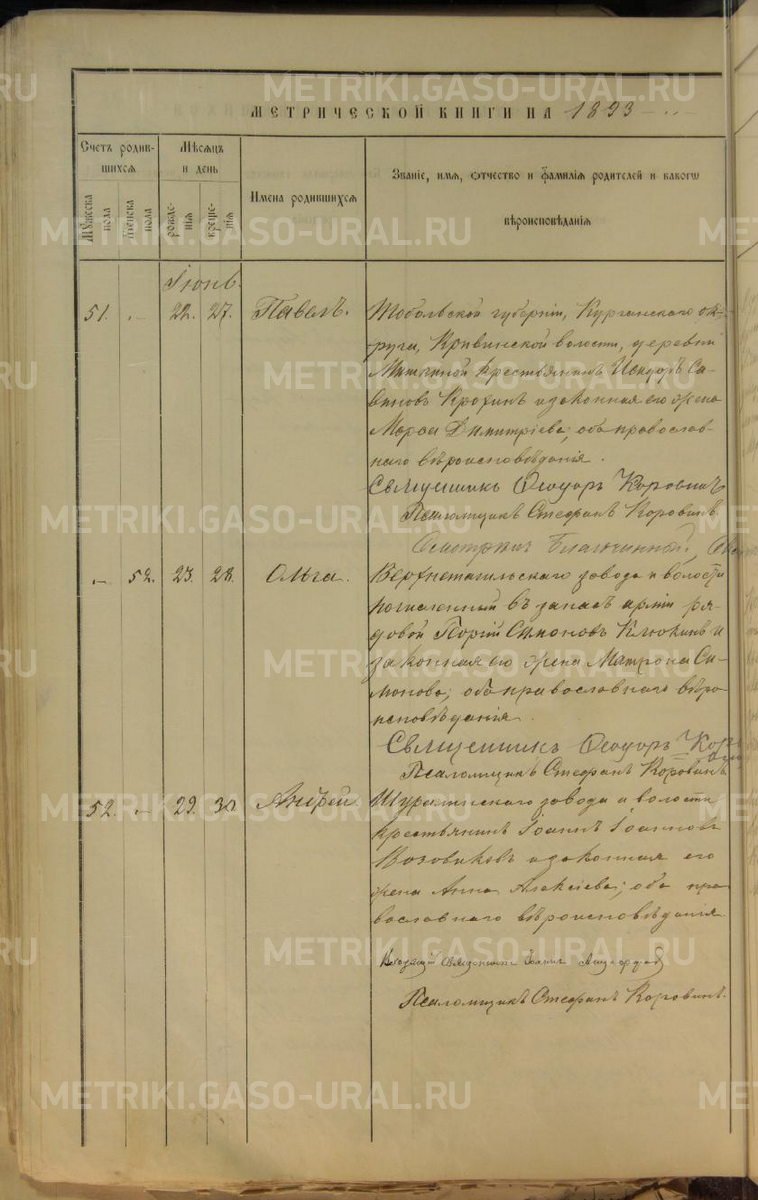 МЕТРИЧЕСКОЙ КНИГИ НА 1893
Счетъ родив-
шихся
Мѣсяцъ
и день
Имена родившихся
Званіе, имя, отчество и фамилія родителей и какого
вѣроисповѣданія
Мужеска
пола
Женска
пола
рожде-
нія
креще-
нія
Іюнь.
51. 22. 27. Павелъ.
Тобольской губерніи, Курганскаго ок-
руга, Кривинской волости, деревни
крестьянинъ Исидоръ Са-
виновъ Крохинъ и законная его жена
Димитріева; оба православ-
наго вѣроисповѣданія.
Священникъ Ѳеодоръ Коровинъ
Псаломщикъ Стефанъ Коровинъ.
Благочинный,
52. 23. 28. Ольга.
Верхнетагильскаго завода и волости
въ запасъ арміи ря-
довой Симоновъ Клюкинъ и
законная его жена Матрона Си-
монова; оба православнаго вѣро
исповѣданія.
Священникъ Ѳеодоръ
Псаломщикъ Стефанъ Коровинъ.
52. 29. 30. Андрей.
Шуралинскаго завода и волости
крестьянинъ Іоаннъ Іоанновъ
Возовиковъ и законная его
жена Анна Алексіева; оба пра
вославнаго вѣроисповѣданія.
священникъ Іоаннъ
Псаломщикъ Стефанъ Коровинъ.
METRIKI.GASO-URAL.RU